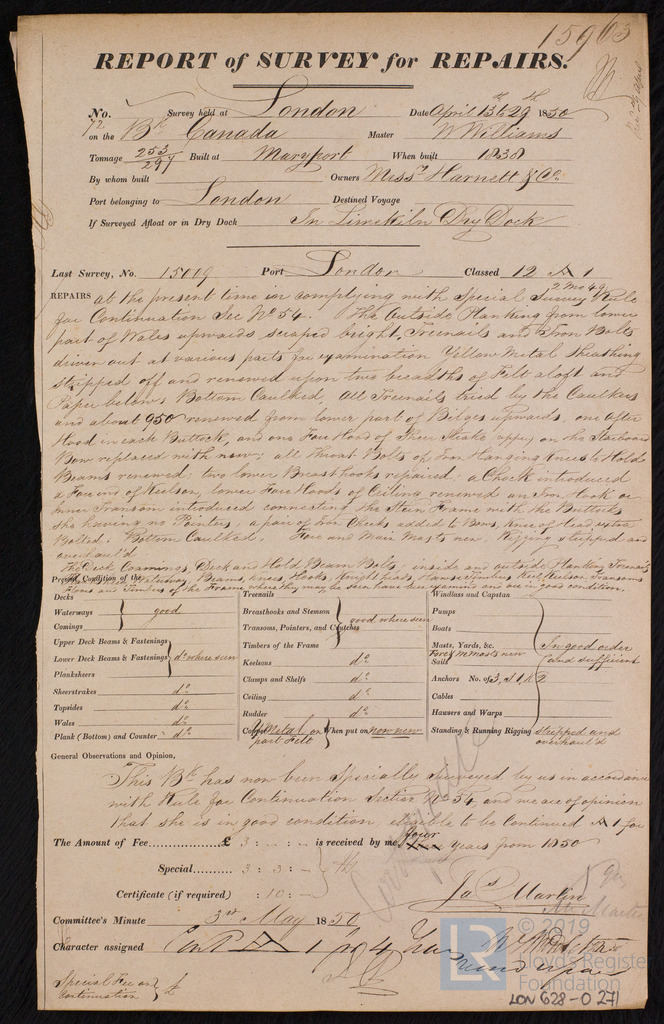 15963
REPORT of SURVEY for REPAIRS.
No. 72 Survey held at London Date April 13th to 29th 1850
on the Bk Canada Master W Williams
Tonnage 253/297 Built at Maryport When built 1838
By whom built Owners Messrs Harnett & Co.
Port belonging to London Destined Voyage
If Surveyed Afloat or in Dry Dock In Limekiln Dry Dock
Last Survey, No. 15019 Port London Classed 12 A 1
2 Mo 49
REPAIRS at the present time in complying with Special Survey & Rule
for Continuation Sec No 54. The Outside Planking from lower
part of Wales upwards scraped bright, Treenails and Iron Bolts
driven out at various parts for examination Yellow Metal Sheathing
stripped off and renewed upon two breadths of Felt aloft and
Paper below, Bottom Caulked, all Treenails tried by the Caulkers
and about 950 renewed from lower part of Bilges upwards, one After
Hood in each Buttock, and one Fore Hood of Sheer Strake on the Starboard
Bow replaced with new; all Throat Bolts of Iron Hanging Knees to Hold
Beams renewed; two lower Breasthooks repaired; a Chock introduced
a Fore end of Keelson, lower Fore Hoods of Ceiling renewed an Iron Hook or
Inner Transom introduced connecting the Stern Frame with the Buttocks
she having no Pointers, a pair of Iron Cheeks added to Bows, Knee of Head extra
Bolted. Bottom Caulked. Fore and Main Masts new. Rigging stripped and
overhaul'd
The Deck Coamings, Deck and Hold Beam Bolts, inside and outside Planking Treenails
Waterways Beams, Knees, Hooks, Knightheads, Hawse Timbers Keel, Keelson, Transoms
Floors and Timbers of the Frame where they may be seen have been examined and are in good condition.
Present Condition of the
Decks
Waterways good
Comings
Upper Deck Beams & Fastenings
Lower Deck Beams & Fastenings do where seen
Planksheers
Sheerstrakes do
Topsides do
Wales do
Plank (Bottom) and Counter do
Treenails
Breasthooks and Stemson good where seen
Transoms, Pointers, and Crutches
Timbers of the Frame
Keelsons do
Clamps and Shelfs do
Ceiling do
Rudder do
Copper Y Metal on part Felt When put on now new
Windlass and Capstan
Pumps
Boats
Masts, Yards, &c. In good order
Fore & M Masts new
Sails and sufficient
Anchors No. of 3, S 1 K 2
Cables
Hawsers and Warps
Standing & Running Rigging stripped and
overhaul'd
General Observations and Opinion,
This Bk has now been Specially Surveyed by us in accordance
with Rule for Continuation Section No 54, and we are of opinion
that she is in good condition, eligible to be Continued A 1 for
four
The Amount of Fee £ 3 : : is received by me, years from 1850
Special 3 : 3 :
Certificate (if required) : 10 :
Jas Martin
Committee's Minute 3rd May 1850
Character assigned Cont A 1 for 4 Years
Special Fee on
Continuation
LR
© 2019
Lloyd's Register
Foundation
LON 628-0 271